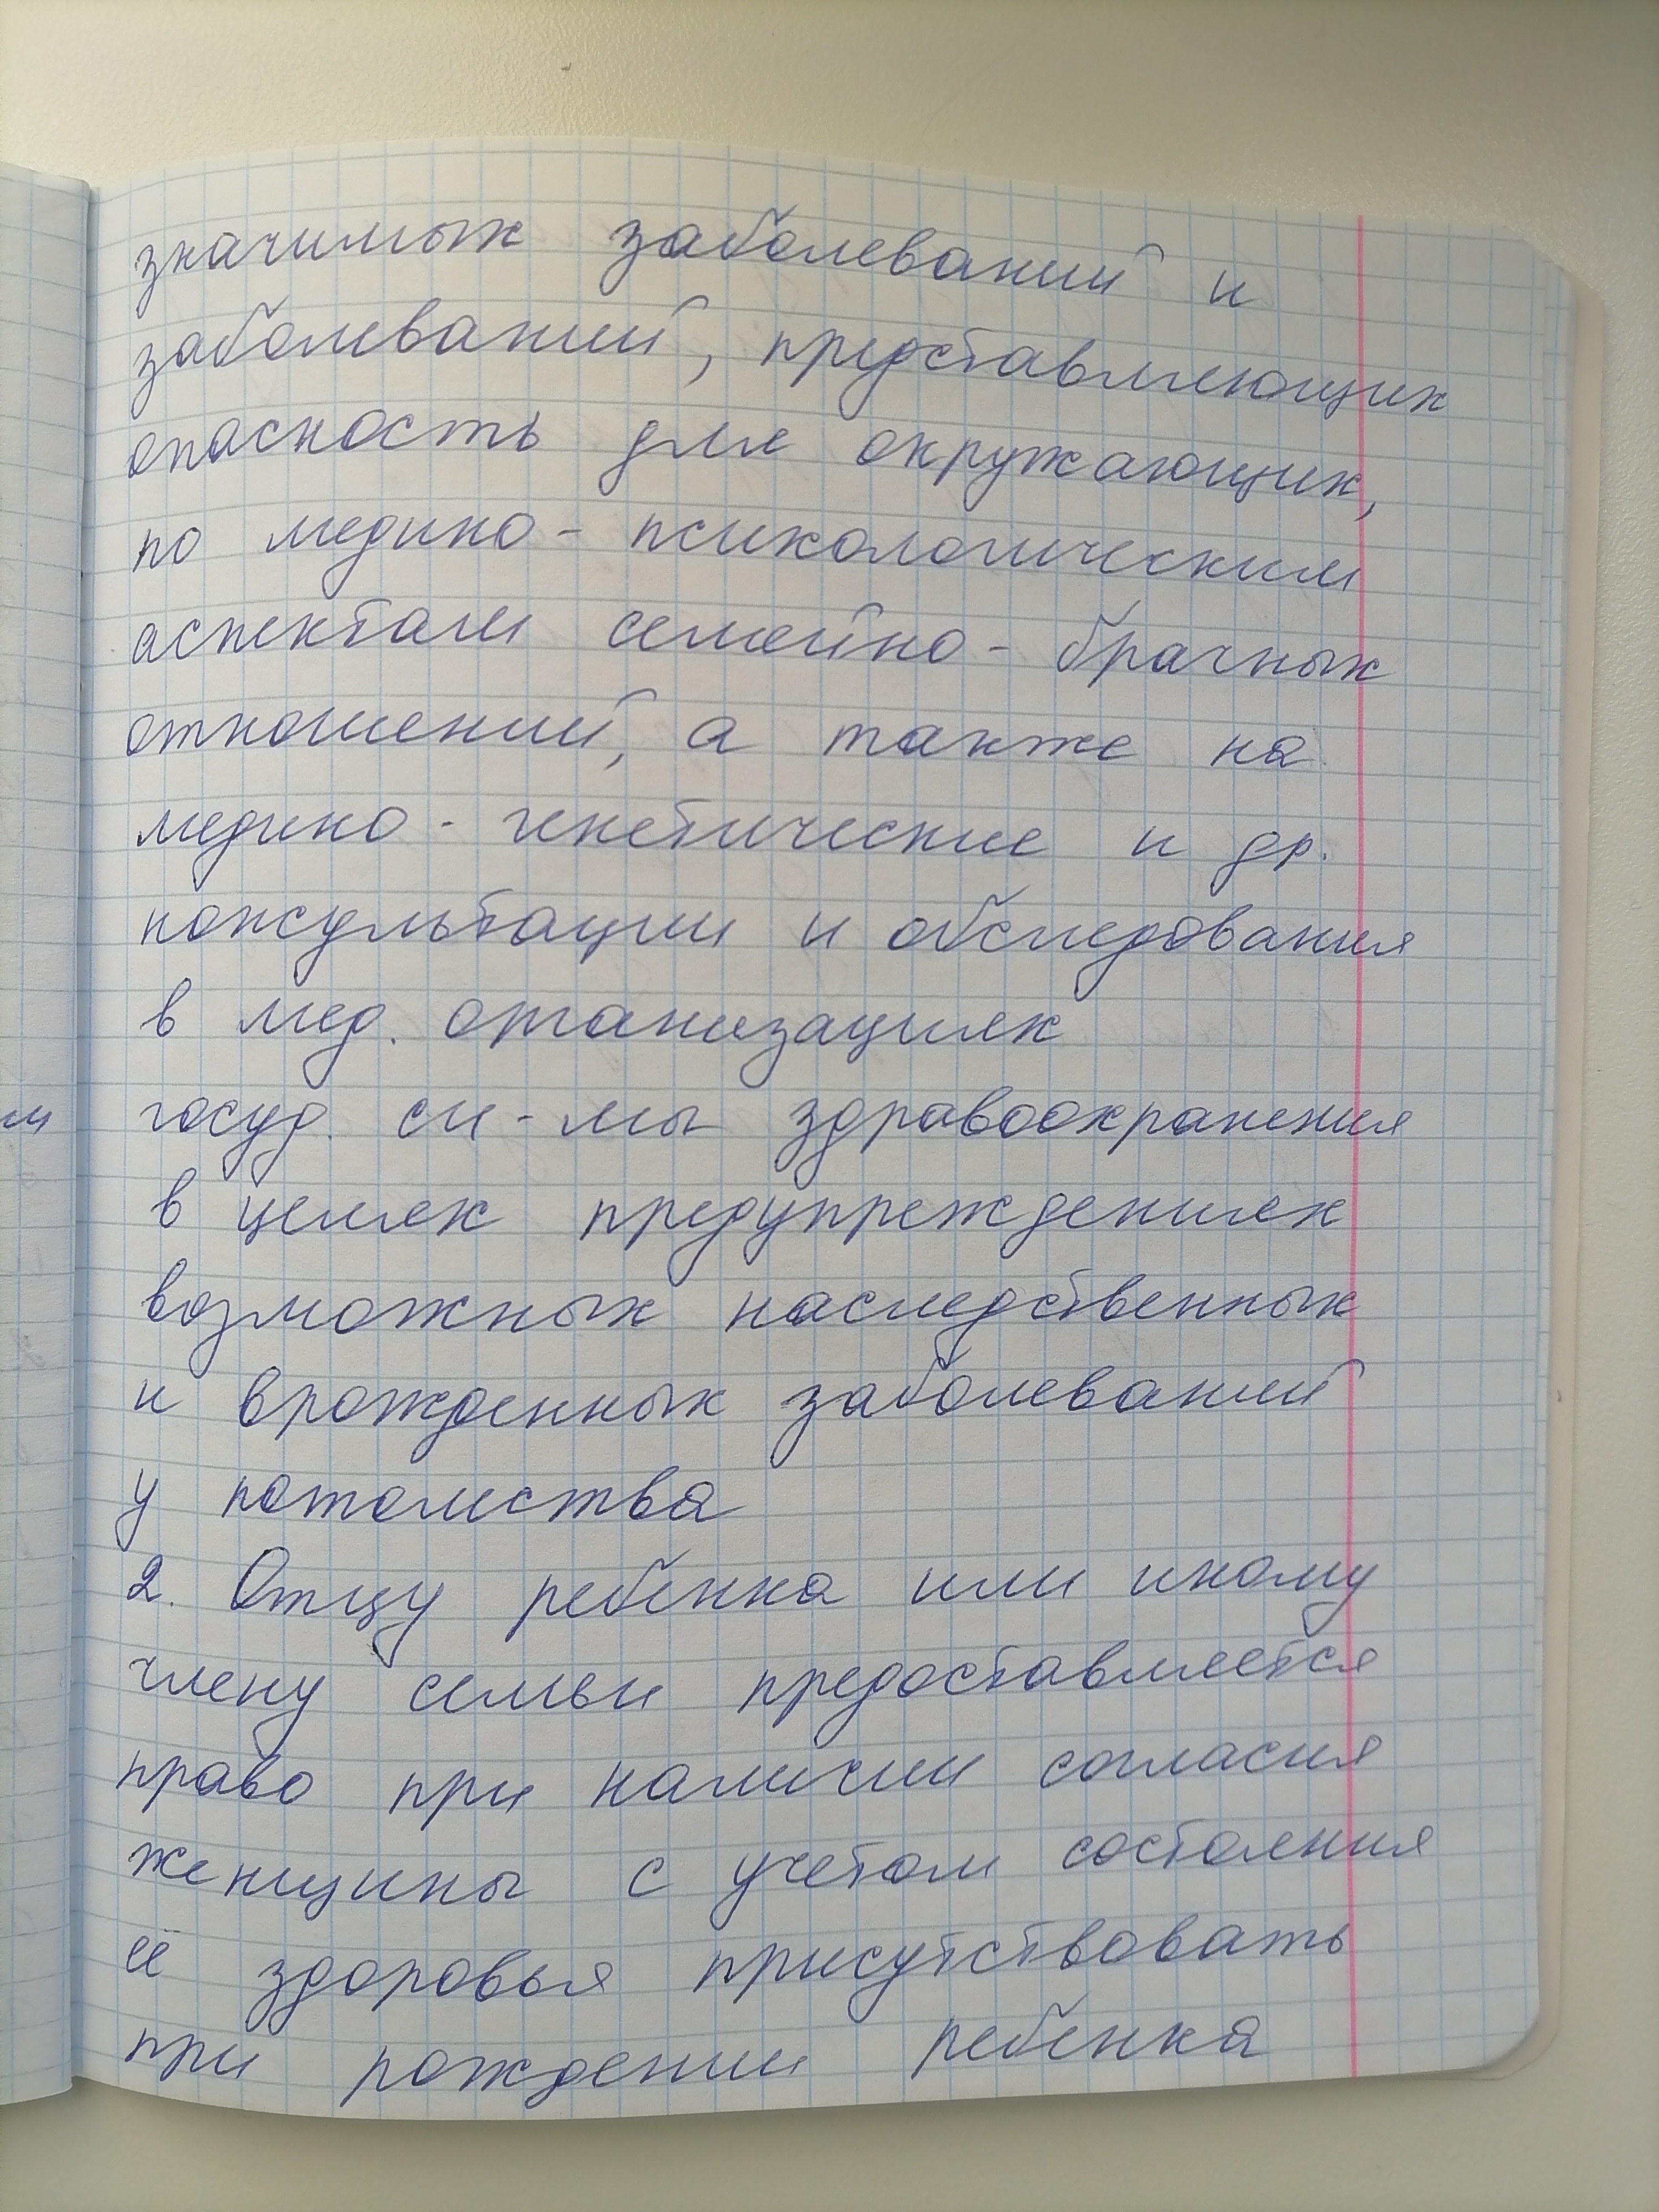 значимых заболеваний и
заболеваний, представляющих
опасность для окружающих,
по медико-психологическим
аспектам семейно-брачных
отношений, а также на
медико-генетические и др.
консультации и обследования
в мед. организациях
госуд. си-мы здравоохранения
в целях предупреждениях
возможных наследственных
и врожденных заболеваний
у потомства
2. Отцу ребенка или иному
члену семьи предоставляется
право при наличии согласия
женщины с учетом состояния
её здоровья присутствовать
при рождении ребенка